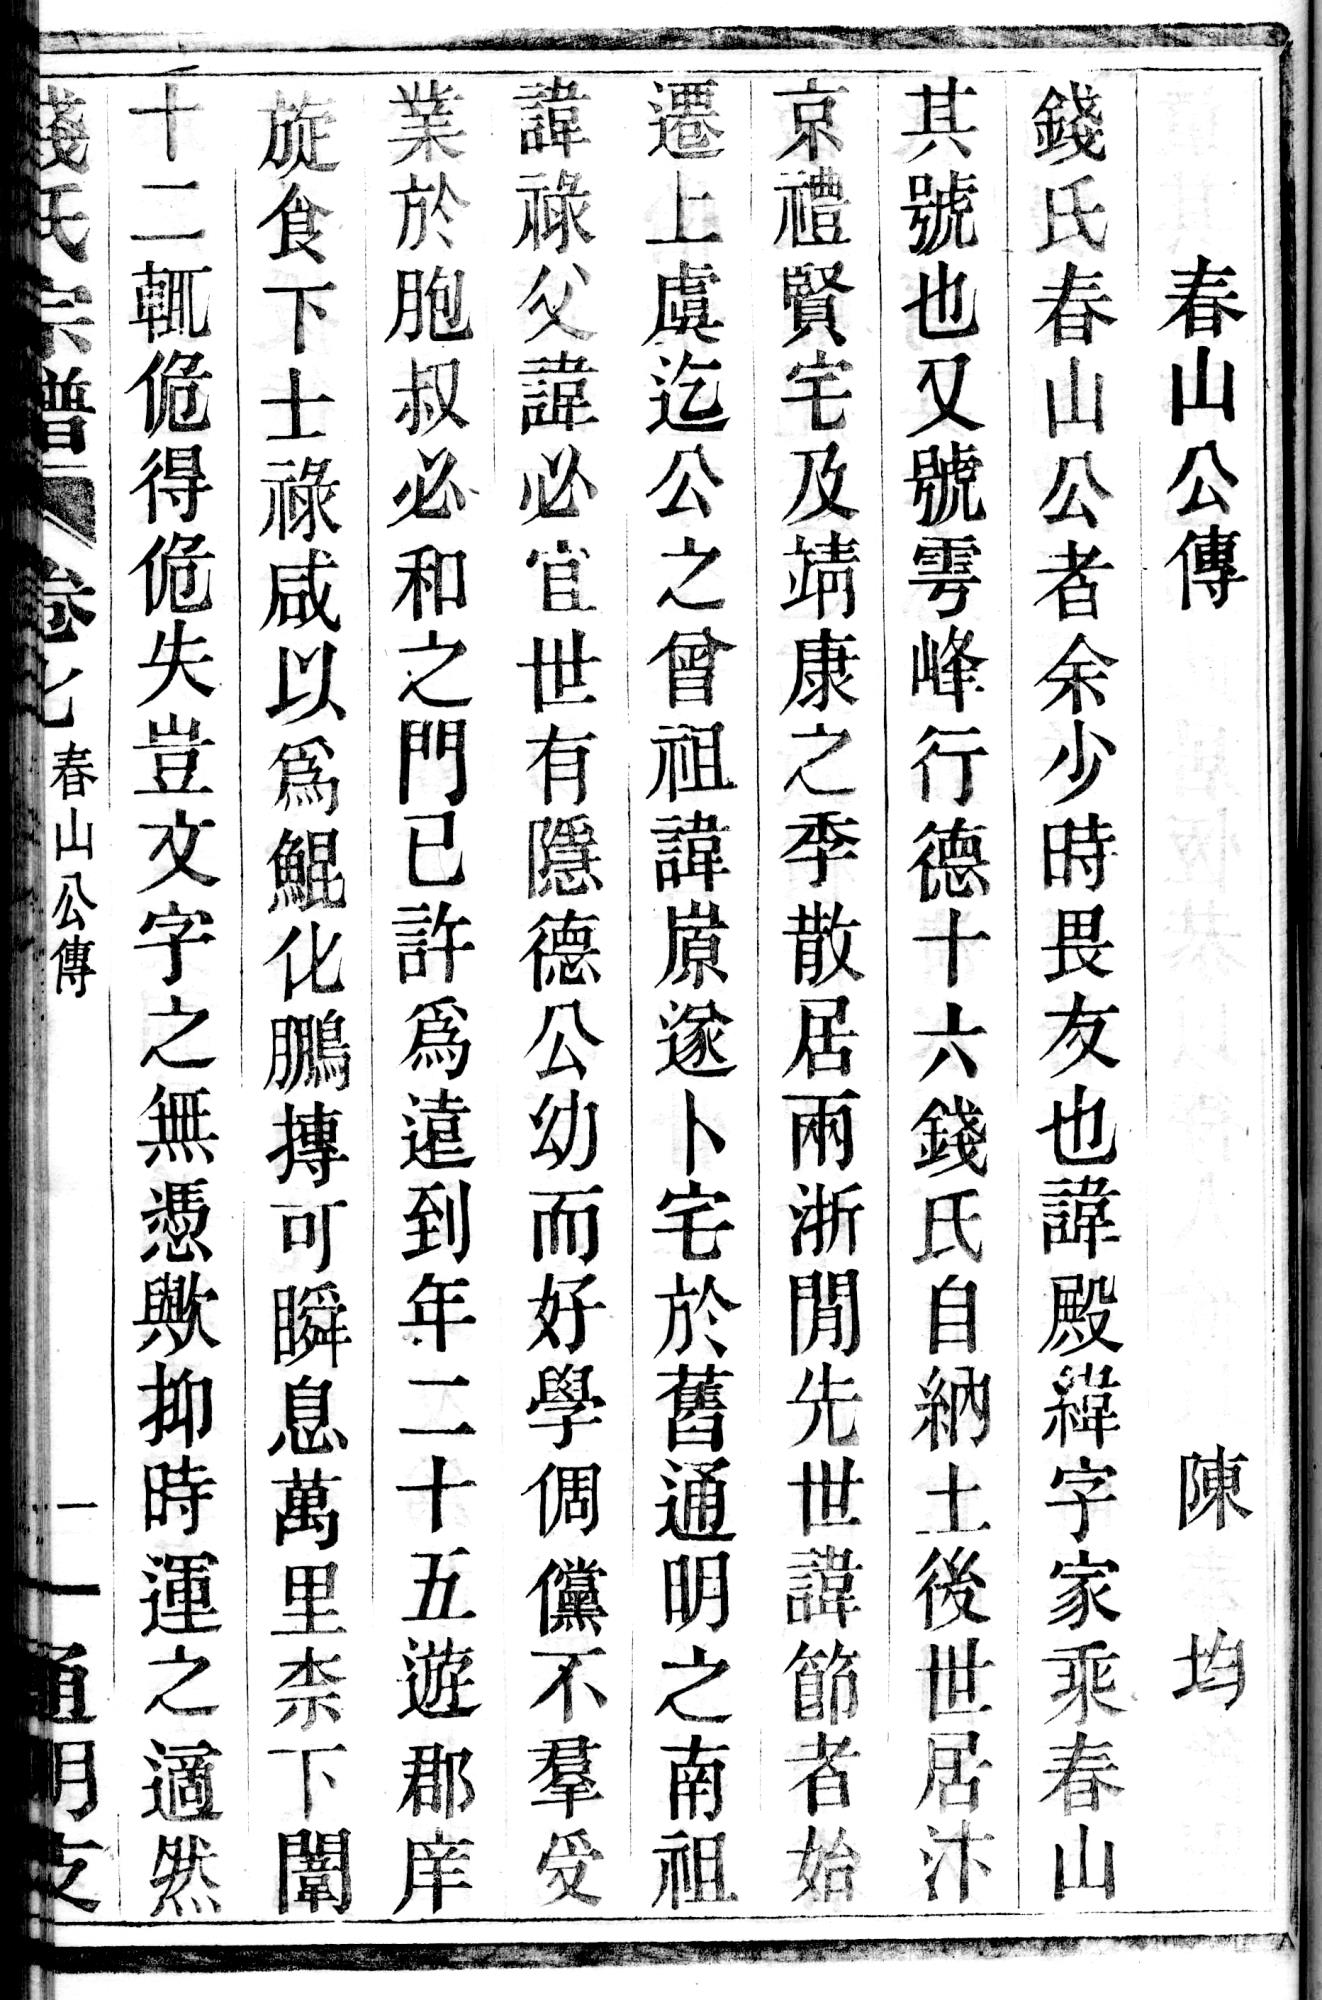 春山公傳 陳均
錢氏春山公者余少時畏友也諱殿緯字家乘春山
其號也又號雩峰行德十六錢氏自納土後世居汴
京禮賢宅及靖康之季散居兩浙閒先世諱節者始
遷上虞迄公之曾祖諱㟲遂卜宅於舊通明之南祖
諱祿父諱必宜世有隱德公幼而好學倜儻不羣受
業於胞叔必和之門已許爲遠到年二十五遊郡庠
旋食下士祿咸以爲鯤化鵬摶可瞬息萬里柰下闈
十二輒佹得佹失豈文字之無憑歟抑時運之適然
錢氏宗譜 卷七 春山公傳 一 通明支